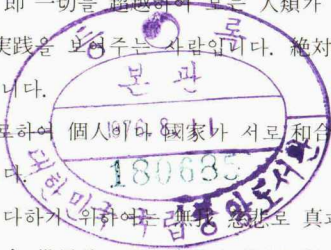 即 一切를 超越하여 모든 人類가
実践을 보여주는 사람입니다. 絶対
니다.
로하여 個人이나 國家가 서로 和合
다.
다하기 위하여는 無我 慈悲로 真
등 록
본 관
1976. 8. 11
180685
대한민국 국립중앙도서관